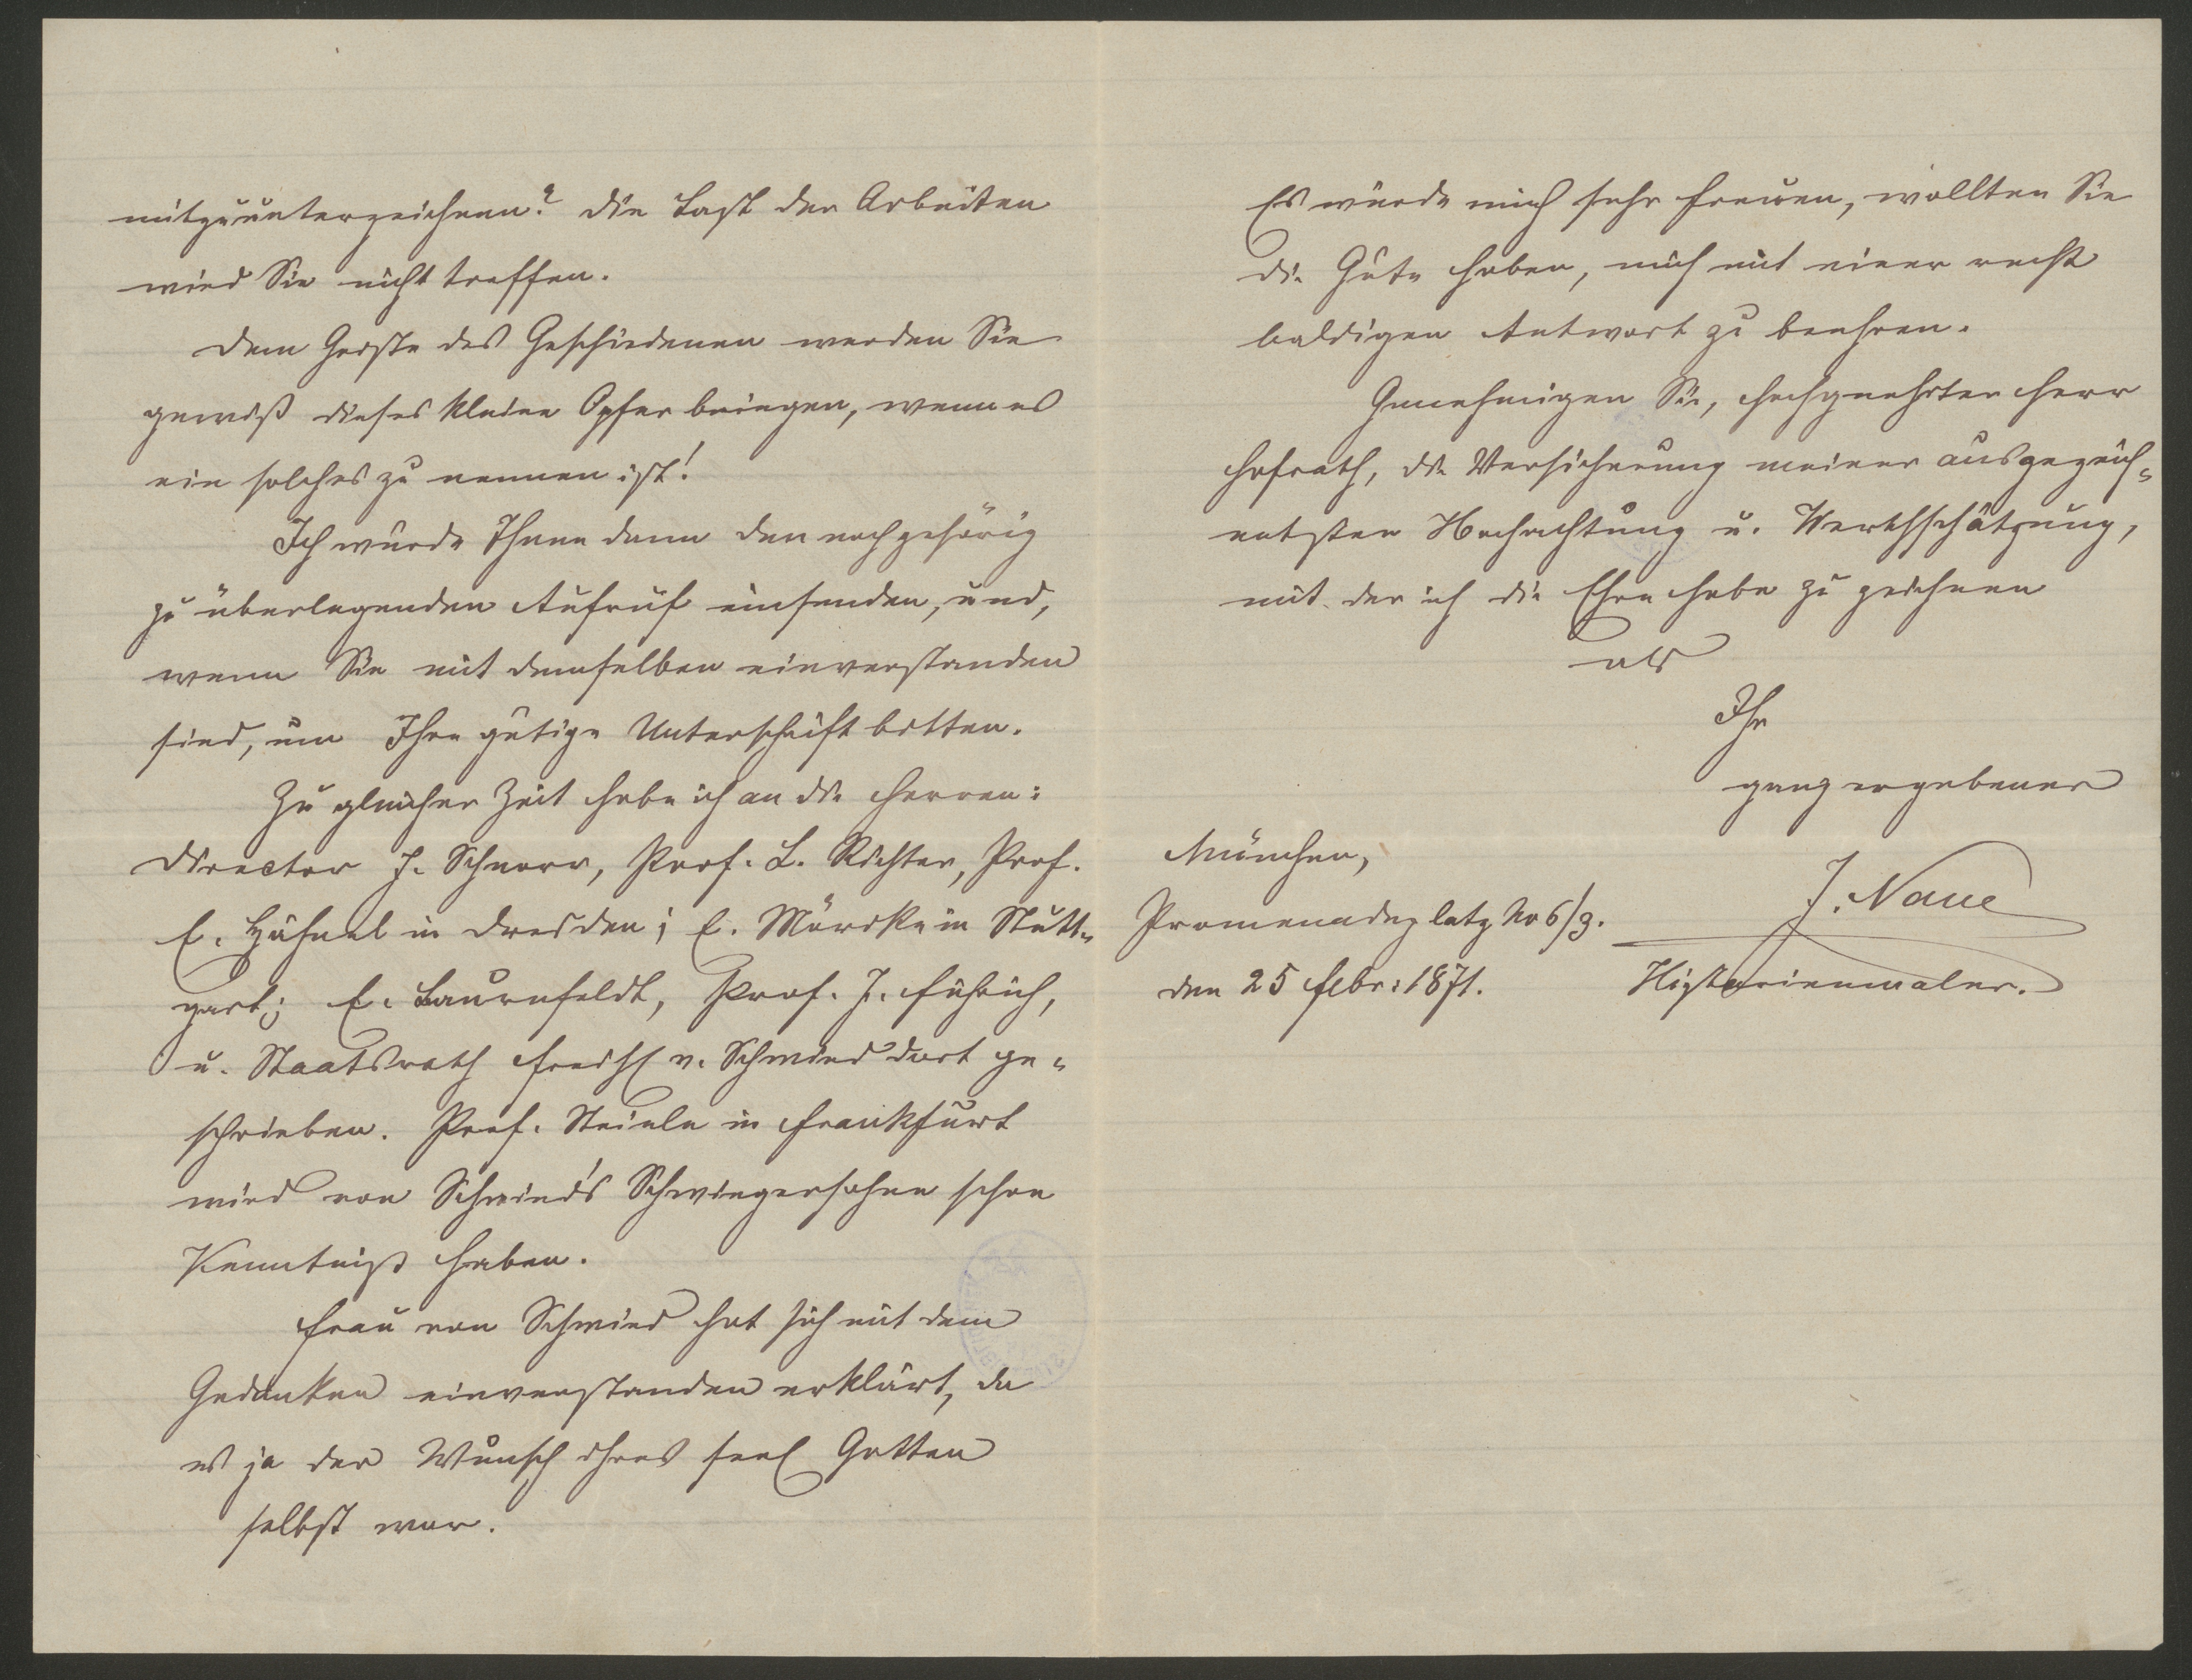 mitzuunterzeichnen? Die Last der Arbeiten
wird Sie nicht treffen.
Dem Geiste des Geschiedenen werden Sie
gewiß dieses kleine Opfer bringen, wenn es
ein solches zu nennen ist!
Ich würde Ihnen dann den noch gehörig
zu überlegenden Aufruf einsenden, und,
wenn Sie mit demselben einverstanden
sind, um Ihre gütige Unterschrift bitten.
Zu gleicher Zeit habe ich an die Herren:
Director J. Schnorr, Prof. L. Richter, Prof.
E. Hähnel in Dresden; E. Mörike in Stutt-
gart; E. Baurnfeldt, Prof. J. Führich,
u. Staatsrath Freih v. Schwind dort ge-
schrieben. Prof. Steinle in Frankfurt
wird von Schwind's Schwiegersohne schon
Kenntniß haben.
Frau von Schwind hat sich mit dem
Gedanken einverstanden erklärt, da
es ja der Wunsch ihres seel Gatten
selbst war.
Es würde mich sehr freuen, wollten Sie
die Güte haben, mich mit einer recht
baldigen Antwort zu beehren.
Genehmigen Sie, hochgeehrter Herr
Hofrath, die Versicherung meiner ausgezeich-
netsten Hochachtung u. Werthschätzung,
mit der ich die Ehre habe zu zeichnen
als
Ihr
ganz ergebener
J. Naue
Historienmaler.
München,
Promenadeplatz No 6/3.
den 25 Febr: 1871.